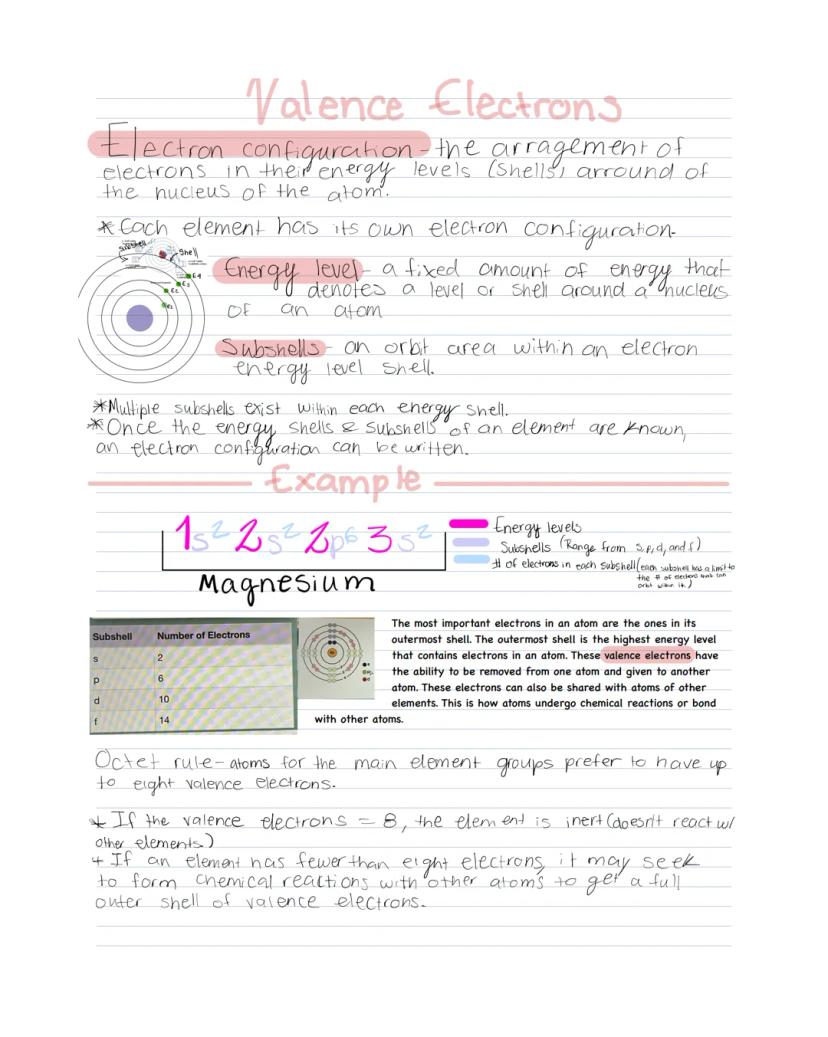 Valence Electrons
Electron configuration - the arragement of
electrons in their energy levels (shells) arround of
the nucleus of the atom.
*Each element has its own electron configuration.
Subshell
Shell
E4
E3
E2
E1
Energy level - a fixed amount of energy that
denotes a level or shell around a nucleus
of an atom
Subshells - an orbit area within an electron
energy level shell.
*Multiple subshells exist within each energy shell.
*Once the energy shells & subshells of an element are known,
an electron configuration can be written.
Example
1s² 2s² 2p⁶ 3s²
Magnesium
Energy levels
Subshells (Range from s,p,d, and f)
# of electrons in each subshell (each subshell has a limit to
the # of electrons that can
orbit within it.)
Subshell Number of Electrons
s 2
p 6
d 10
f 14
The most important electrons in an atom are the ones in its
outermost shell. The outermost shell is the highest energy level
that contains electrons in an atom. These valence electrons have
the ability to be removed from one atom and given to another
atom. These electrons can also be shared with atoms of other
elements. This is how atoms undergo chemical reactions or bond
with other atoms.
Octet rule - atoms for the main element groups prefer to have up
to eight valence electrons.
* If the valence electrons = 8, the element is inert (doesn't react w/
other elements)
+ If an element has fewer than eight electrons, it may seek
to form chemical reactions with other atoms to get a full
outer shell of valence electrons.